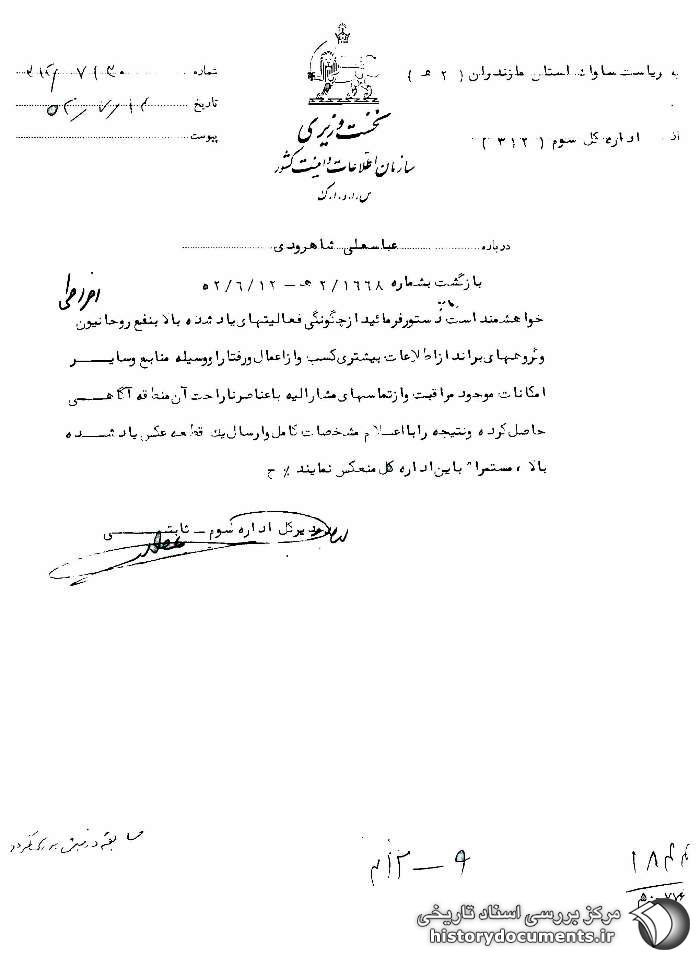 به ریاست ساواک استان مازندران ( ۲ هـ )
از اداره کل سوم ( ۳۱۲ )
نخست وزیری
سازمان اطلاعات و امنیت کشور
س.ا.و.ا.ک
شماره
تاریخ
پیوست
درباره عباسعلی شاهرودی
بازگشت بشماره ۲/۱۶۶۸هـ - ۵۲/۶/۱۲
خواهشمند است دستور فرمائید از چگونگی فعالیتهای یاد شده بالا بنفع روحانیون
و گروههای برانداز اطلاعات بیشتری کسب و از اعمال و رفتار او وسیله منابع و سایر
امکانات موجود مراقبت و از تماسهای مشارالیه با عناصر ناراحت آن منطقه آگاهی
حاصل کرده و نتیجه را با اعلام مشخصات کامل و ارسال یک قطعه عکس یاد شده
بالا ، مستمرا" باین اداره کل منعکس نمایند ٪ ح
مدیرکل اداره سوم - ثابتی
مرکز بررسی اسناد تاریخی
historydocuments.ir